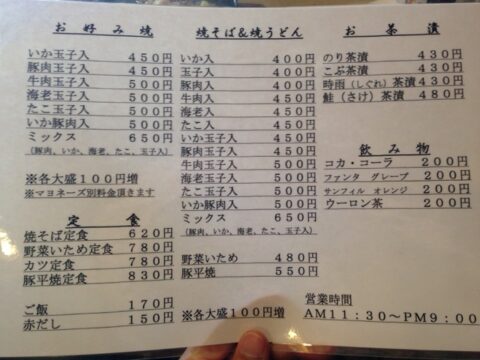 お好み焼
いか玉子入 450円
豚肉玉子入 450円
牛肉玉子入 500円
海老玉子入 500円
たこ玉子入 500円
いか豚肉入 500円
ミックス 650円
(豚肉、いか、海老、たこ、玉子入)
※各大盛100円増
※マヨネーズ別料金頂きます
定食
焼そば定食 620円
野菜いため定食 780円
カツ定食 780円
豚平焼定食 830円
ご飯 170円
赤だし 150円
焼そば&焼うどん
いか入 400円
玉入 400円
豚肉入 400円
牛肉入 450円
海老入 450円
たこ入 450円
いか玉子入 450円
豚肉玉子入 450円
牛肉玉子入 500円
海老玉子入 500円
たこ玉子入 500円
いか豚肉入 500円
ミックス 650円
(豚肉、いか、海老、たこ、玉子入)
野菜いため 480円
豚平焼 550円
※各大盛100円増
お茶漬
のり茶漬 430円
こぶ茶漬 430円
時雨(しぐれ)茶漬 430円
鮭(さけ)茶漬 480円
飲み物
コカ・コーラ 200円
ファンタ グレープ 200円
サンフィル オレンジ 200円
ウーロン茶 200円
営業時間
AM11:30～PM9:00